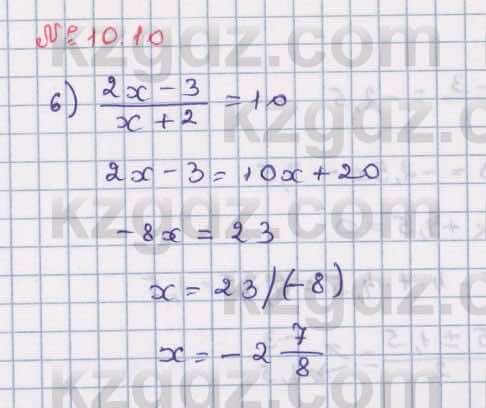 № 10.10
б) (2x - 3)/(x + 2) = 10
2x - 3 = 10x + 20
-8x = 23
x = 23/(-8)
x = -2 7/8
kzgdz.com